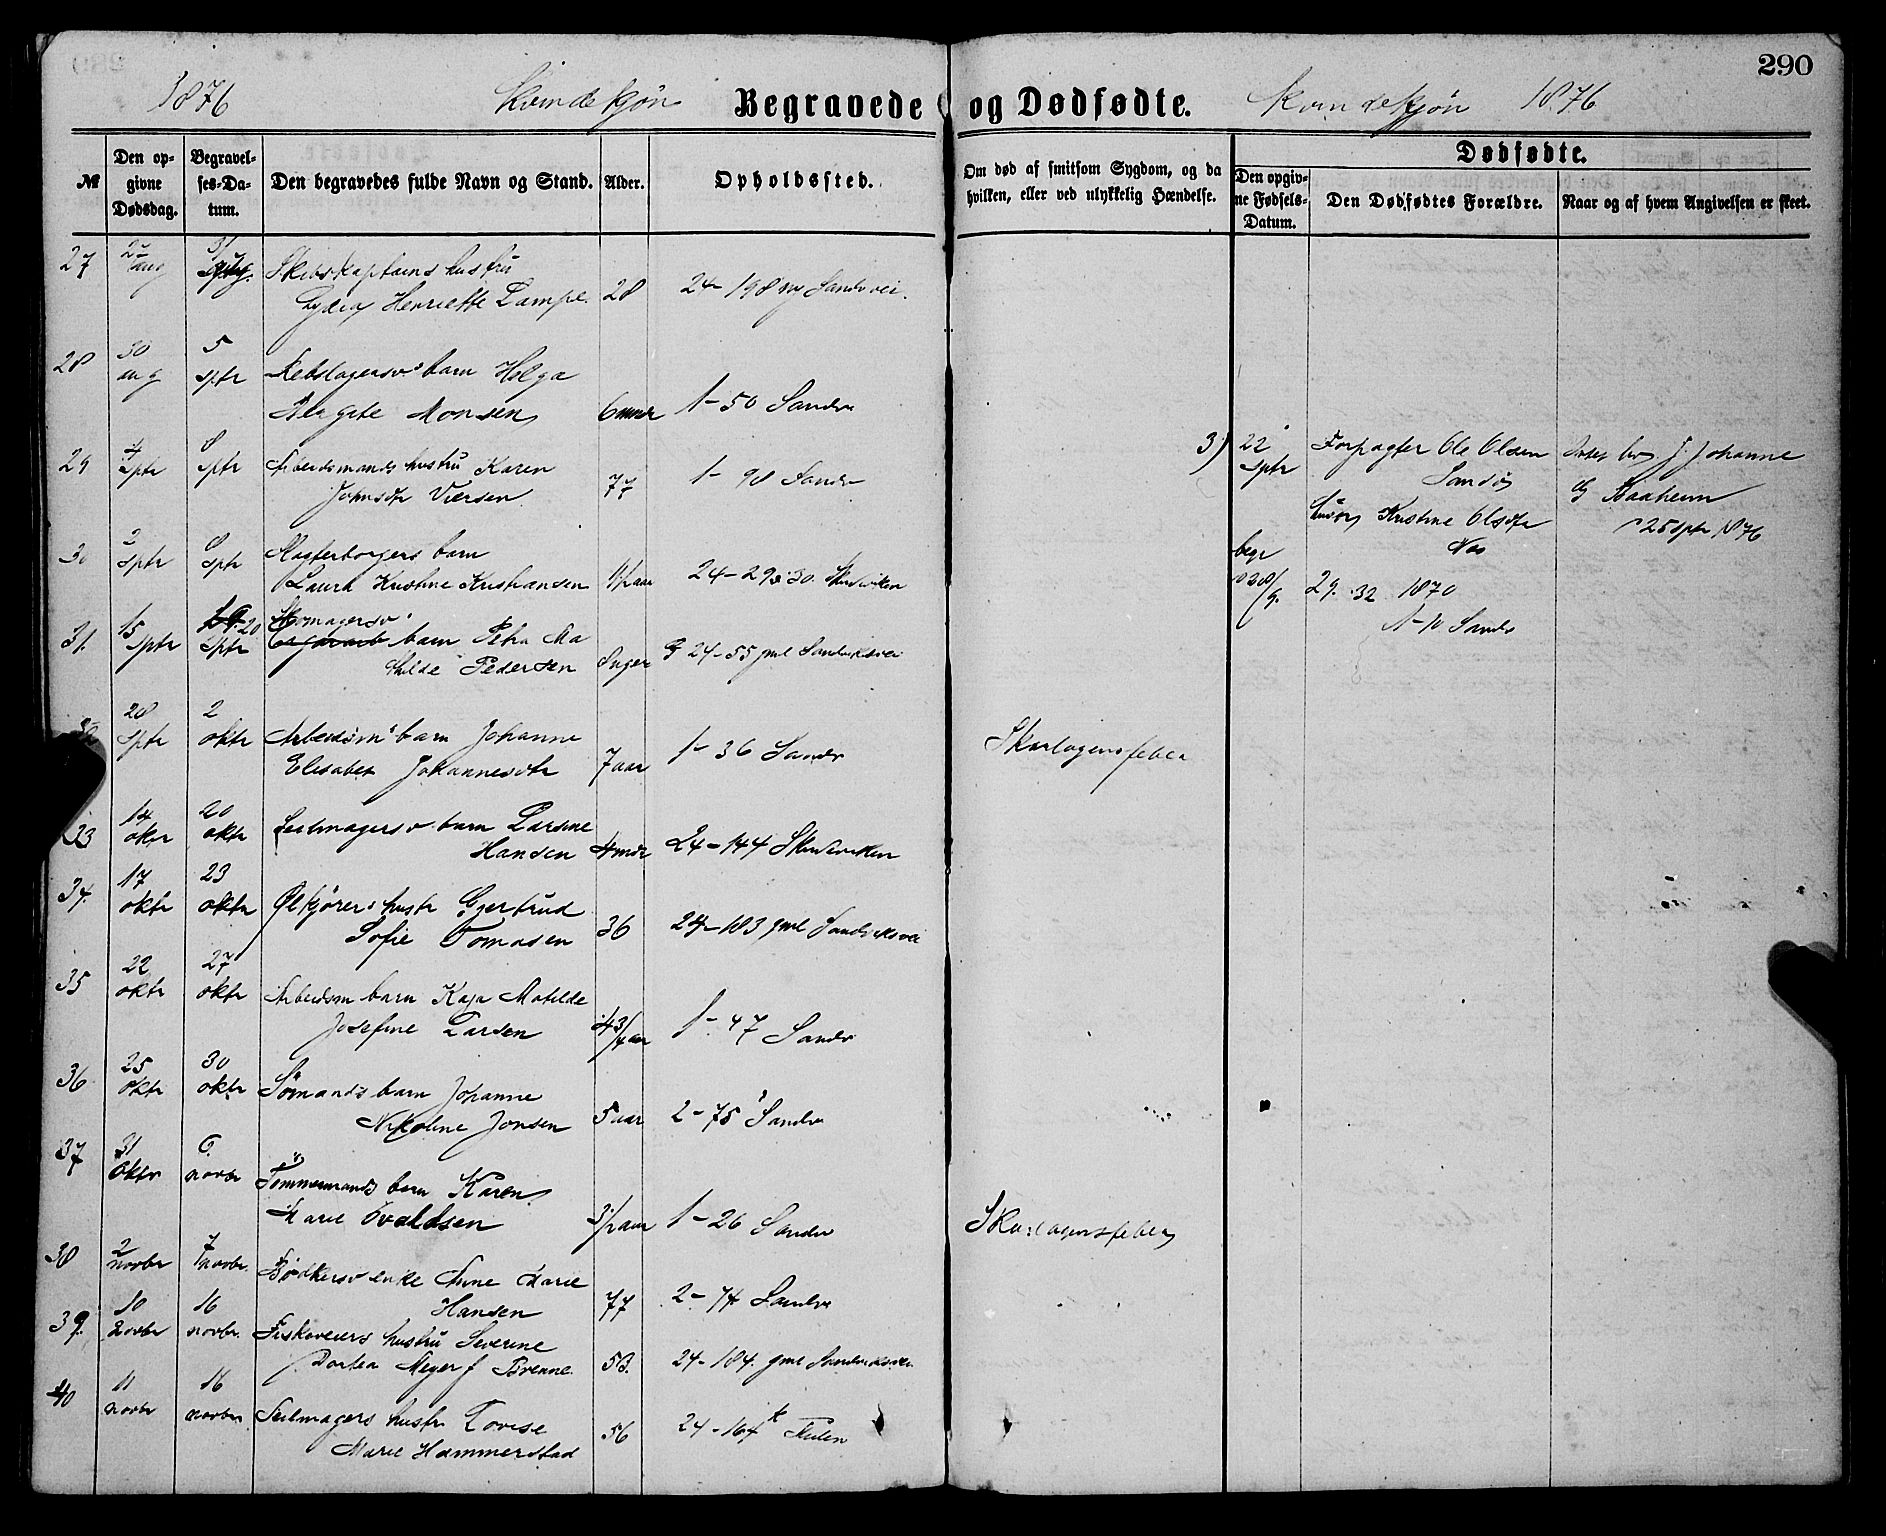 290
1876 Kvindekjøn Begravede og Dødfødte. Kvindekjøn 1876
№
Den opgivne Dødsdag.
Begravelses-Datum.
Den begravedes fulde Navn og Stand.
Alder.
Opholdssted.
Om død af smitsom Sygdom, og da hvilken, eller ved ulykkelig Hændelse.
Dødfødte.
Den opgivne Fødsels-Datum.
Den Dødfødtes Forældre.
Naar og af hvem Angivelsen er skeet.
27 aug Skibskaptains hustru
Henriette Lampe 28 24-198 ny Sandvvei.
28 30 aug 5 sptr barn Helga
Monsen 6 mndr 1-50 Sandv
29 4 sptr 8 sptr Arbeidsmands hustru Karen
Johnsdtr 77 1-98 Sandv
3) 22 sptr Forpagter Ole Olsen
Kristine Olsdtr
25 sptr 1876
30 2 sptr 8 sptr barn
Laura Kristine Kristiansen 24-29 Skudeviken
begr
29. 32 1870
1-10 Sandv
31. 15 sptr 20 sptr barn Petra Ma
thilde Pedersen 24-55 gml Sandviksvei
28 sptr 2 oktr Arbeidsm barn Johanne
Elisabet Johannesdtr 7 aar 1-36 Sandv Skarlagensfeber
33 14 oktr 20 oktr Seilmagersv barn Larsine
Hansen 4 mdr 24-144 Skudeviken
34. 17 oktr 23 oktr Ølkjørers hustr Gjertrud
Sofie Tomasen 36 24-183 gml Sandviksvei
35 22 oktr 27 oktr Arbeidsm barn Kaja Matilde
Josefine Larsen 4 3/4 aar 1-47 Sandv
36 25 oktr 30 oktr Sömands barn Johanne
Nikoline Jonsen 5 aar 2-75 Sandv
37 31 oktr 6 novbr Tömmermands barn Karen
Marie 3 1/2 aar 1-26 Sandv Skarlagensfeber
38 2 novbr 7 novbr. Bödkersv enke Anne Marie
Hansen 77 2-74 Sandv
39. 10 novbr 16 novbr. hustru Severine
Dortea Meyer f Brenne. 53. 24-184. gml Sandviksvei
40 11 novbr 16 novbr Seilmagers hustr Lovise
Marie Hammerstad 56 24-164